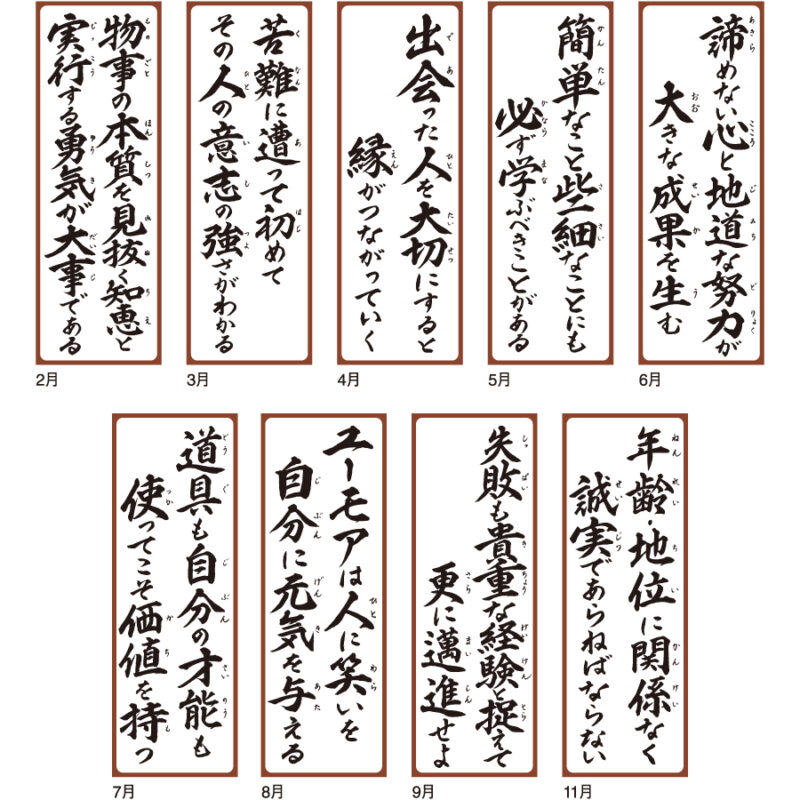 物事の本質を見抜く知恵と
実行する勇気が大事である
2月
苦難に遭って初めて
その人の意志の強さがわかる
3月
出会った人を大切にすると
縁がつながっていく
4月
簡単なこと些細なことにも
必ず学ぶべきことがある
5月
諦めない心と地道な努力が
大きな成果を生む
6月
道具も自分の才能も
使ってこそ価値を持つ
7月
ユーモアは人に笑いを
自分に元気を与える
8月
失敗も貴重な経験と捉えて
更に邁進せよ
9月
年齢・地位に関係なく
誠実であらねばならない
11月